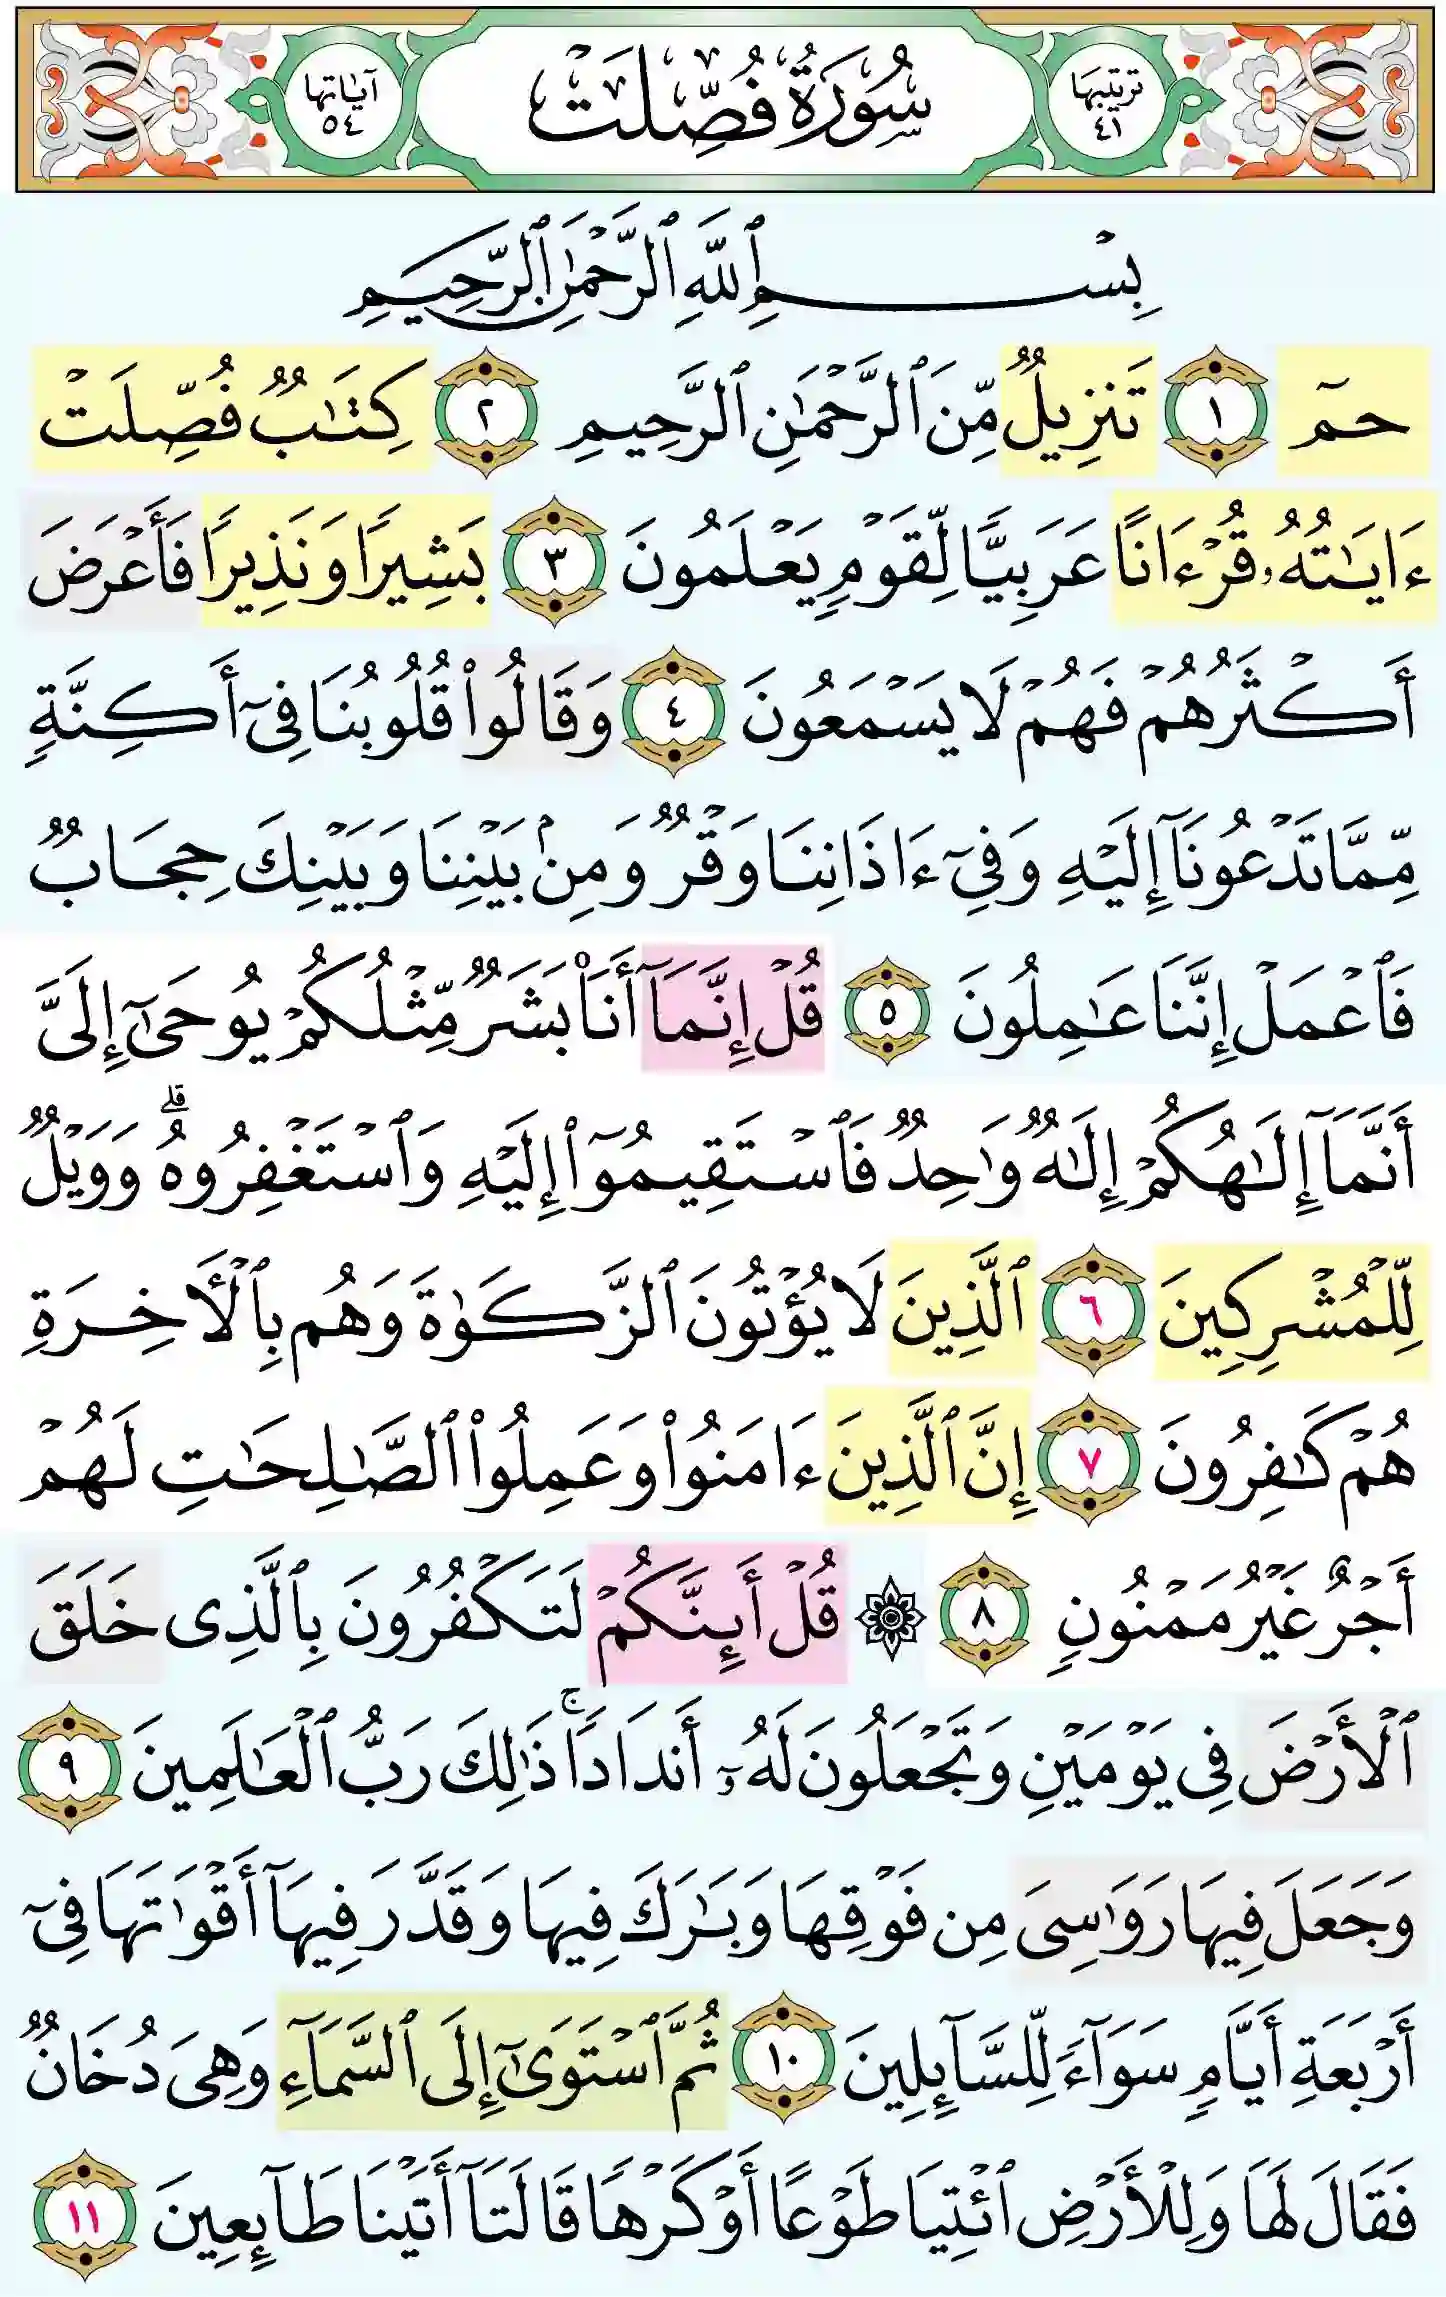 ترتيبها
٤١
سُورَةُ فُصِّلَتْ
آيَاتها
٥٤
بِسْمِ ٱللَّهِ ٱلرَّحْمَٰنِ ٱلرَّحِيمِ
حمٓ ١ تَنزِيلٌ مِّنَ ٱلرَّحْمَٰنِ ٱلرَّحِيمِ ٢ كِتَٰبٌ فُصِّلَتْ
ءَايَٰتُهُۥ قُرْءَانًا عَرَبِيًّا لِّقَوْمٍ يَعْلَمُونَ ٣ بَشِيرًا وَنَذِيرًا فَأَعْرَضَ
أَكْثَرُهُمْ فَهُمْ لَا يَسْمَعُونَ ٤ وَقَالُوا۟ قُلُوبُنَا فِىٓ أَكِنَّةٍ
مِّمَّا تَدْعُونَآ إِلَيْهِ وَفِىٓ ءَاذَانِنَا وَقْرٌ وَمِنۢ بَيْنِنَا وَبَيْنِكَ حِجَابٌ
فَٱعْمَلْ إِنَّنَا عَٰمِلُونَ ٥ قُلْ إِنَّمَآ أَنَا۠ بَشَرٌ مِّثْلُكُمْ يُوحَىٰٓ إِلَىَّ
أَنَّمَآ إِلَٰهُكُمْ إِلَٰهٌ وَٰحِدٌ فَٱسْتَقِيمُوٓا۟ إِلَيْهِ وَٱسْتَغْفِرُوهُ ۗ وَوَيْلٌ
لِّلْمُشْرِكِينَ ٦ ٱلَّذِينَ لَا يُؤْتُونَ ٱلزَّكَوٰةَ وَهُم بِٱلْأَخِرَةِ
هُمْ كَٰفِرُونَ ٧ إِنَّ ٱلَّذِينَ ءَامَنُوا۟ وَعَمِلُوا۟ ٱلصَّٰلِحَٰتِ لَهُمْ
أَجْرٌ غَيْرُ مَمْنُونٍ ٨ ۞ قُلْ أَئِنَّكُمْ لَتَكْفُرُونَ بِٱلَّذِى خَلَقَ
ٱلْأَرْضَ فِى يَوْمَيْنِ وَتَجْعَلُونَ لَهُۥٓ أَندَادًا ۚ ذَٰلِكَ رَبُّ ٱلْعَٰلَمِينَ ٩
وَجَعَلَ فِيهَا رَوَٰسِىَ مِن فَوْقِهَا وَبَٰرَكَ فِيهَا وَقَدَّرَ فِيهَآ أَقْوَٰتَهَا فِىٓ
أَرْبَعَةِ أَيَّامٍ سَوَآءً لِّلسَّآئِلِينَ ١٠ ثُمَّ ٱسْتَوَىٰٓ إِلَى ٱلسَّمَآءِ وَهِىَ دُخَانٌ
فَقَالَ لَهَا وَلِلْأَرْضِ ٱئْتِيَا طَوْعًا أَوْ كَرْهًا قَالَتَآ أَتَيْنَا طَآئِعِينَ ١١